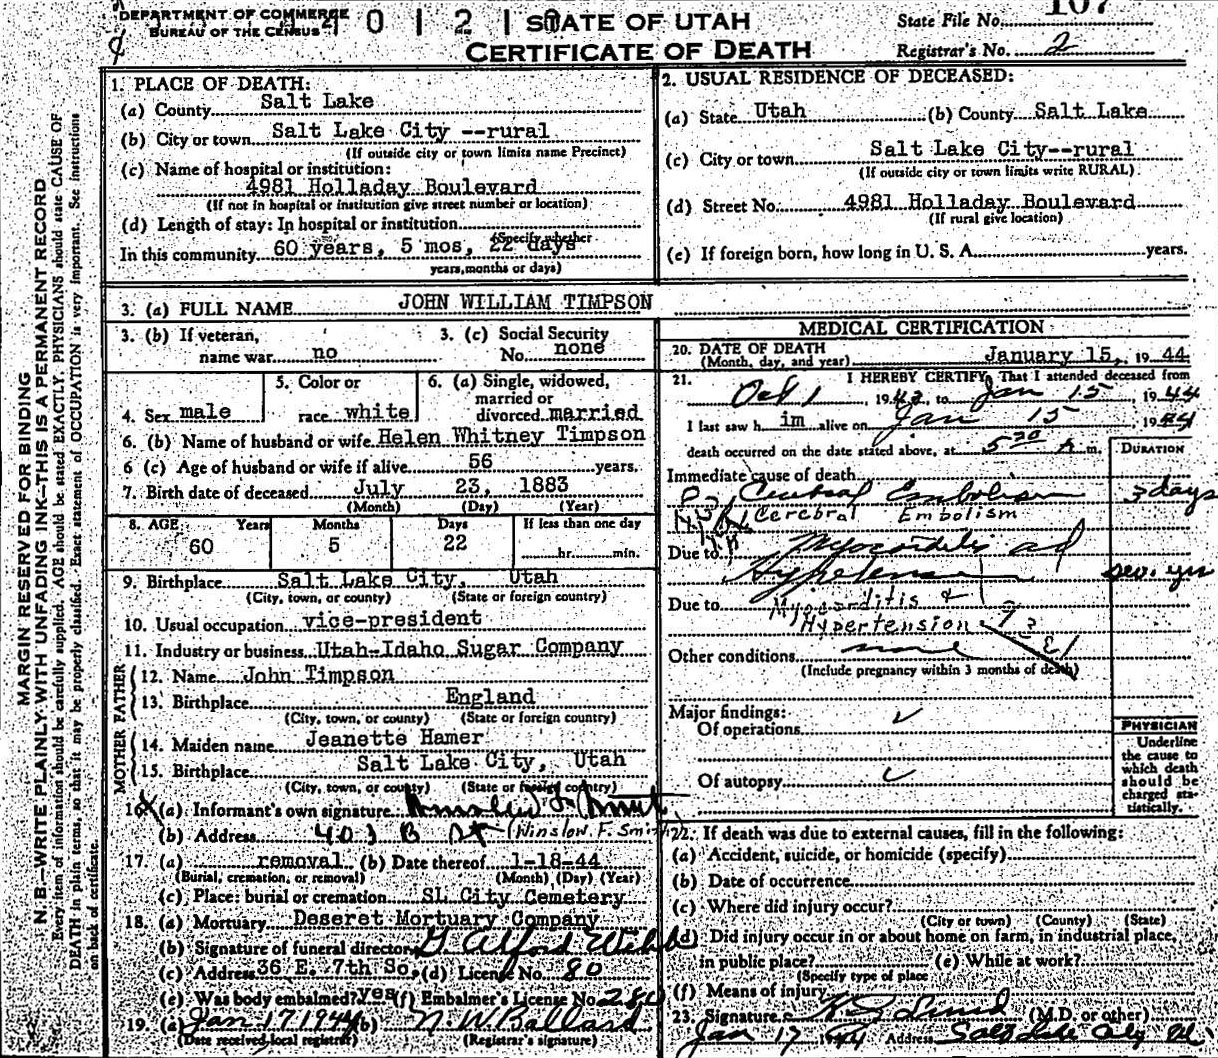 DEPARTMENT OF COMMERCE
BUREAU OF THE CENSUS
0 1 2 1 0
STATE OF UTAH
CERTIFICATE OF DEATH
State File No. 107
Registrar's No. 2
MARGIN RESERVED FOR BINDING
N. B.—WRITE PLAINLY WITH UNFADING INK—THIS IS A PERMANENT RECORD
Every item of information should be carefully supplied. AGE should be stated EXACTLY. PHYSICIANS should state CAUSE OF
DEATH in plain terms, so that it may be properly classified. Exact statement of OCCUPATION is very important. See instructions
on back of certificate.
1. PLACE OF DEATH:
(a) County Salt Lake
(b) City or town Salt Lake City --rural
(If outside city or town limits name Precinct)
(c) Name of hospital or institution:
4981 Holladay Boulevard
(If not in hospital or institution give street number or location)
(d) Length of stay: In hospital or institution
(Specify whether
In this community 60 years, 5 mos, 22 days
years, months or days)
2. USUAL RESIDENCE OF DECEASED:
(a) State Utah (b) County Salt Lake
(c) City or town Salt Lake City--rural
(If outside city or town limits write RURAL)
(d) Street No. 4981 Holladay Boulevard
(If rural give location)
(e) If foreign born, how long in U. S. A. years.
3. (a) FULL NAME JOHN WILLIAM TIMPSON
3. (b) If veteran, name war no
3. (c) Social Security No. none
4. Sex male
5. Color or race white
6. (a) Single, widowed, married or divorced married
6. (b) Name of husband or wife Helen Whitney Timpson
6 (c) Age of husband or wife if alive 56 years.
7. Birth date of deceased July 23, 1883
(Month) (Day) (Year)
8. AGE Years Months Days If less than one day
60 5 22 hr. min.
9. Birthplace Salt Lake City, Utah
(City, town, or county) (State or foreign country)
10. Usual occupation vice-president
11. Industry or business Utah-Idaho Sugar Company
FATHER
12. Name John Timpson
13. Birthplace England
(City, town, or county) (State or foreign country)
MOTHER
14. Maiden name Jeanette Hamer
15. Birthplace Salt Lake City, Utah
(City, town, or county) (State or foreign country)
16. (a) Informant's own signature Winslow F. Smith
(b) Address 403 B St (Winslow F. Smith)
17. (a) removal (b) Date thereof 1-18-44
(Burial, cremation, or removal) (Month) (Day) (Year)
(c) Place: burial or cremation SL City Cemetery
18. (a) Mortuary Deseret Mortuary Company
(b) Signature of funeral director
(c) Address 36 E. 7th So. (d) License No. 80
(e) Was body embalmed? yes (f) Embalmer's License No. 280
19. (a) Jan 17 1944 (b) N. W. Ballard
(Date received local registrar) (Registrar's signature)
MEDICAL CERTIFICATION
20. DATE OF DEATH
(Month, day, and year) January 15, 1944
21. I HEREBY CERTIFY, That I attended deceased from
Oct 1, 1943, to Jan 15, 1944
I last saw h im alive on Jan 15 1944
death occurred on the date stated above, at 5 20 A m.
DURATION
Immediate cause of death
Cerebral Embolism 3 days
Cerebral Embolism
Due to Myocarditis ad
Hypertension sev. yrs
Due to Myocarditis &
Hypertension
Other conditions none
(Include pregnancy within 3 months of death)
Major findings:
Of operations
Of autopsy
PHYSICIAN
Underline
the cause to
which death
should be
charged sta-
tistically.
22. If death was due to external causes, fill in the following:
(a) Accident, suicide, or homicide (specify)
(b) Date of occurrence
(c) Where did injury occur?
(City or town) (County) (State)
(d) Did injury occur in or about home on farm, in industrial place,
in public place? (e) While at work?
(Specify type of place
(f) Means of injury
23. Signature (M.D. or other)
Jan 17 1944 Address Salt Lake City Ut.